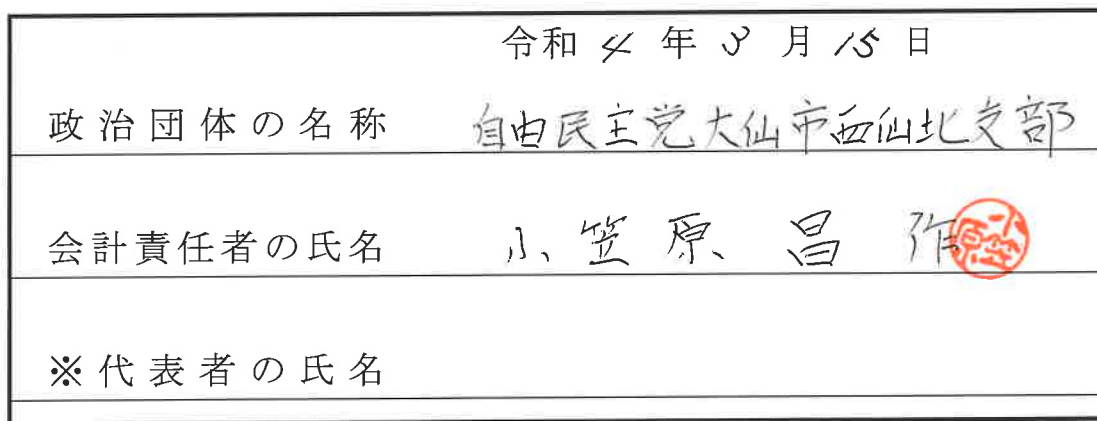 令和 4 年 3 月 15 日
政治団体の名称 自由民主党大仙市西仙北支部
会計責任者の氏名 小笠原 昌作
小笠原
※代表者の氏名